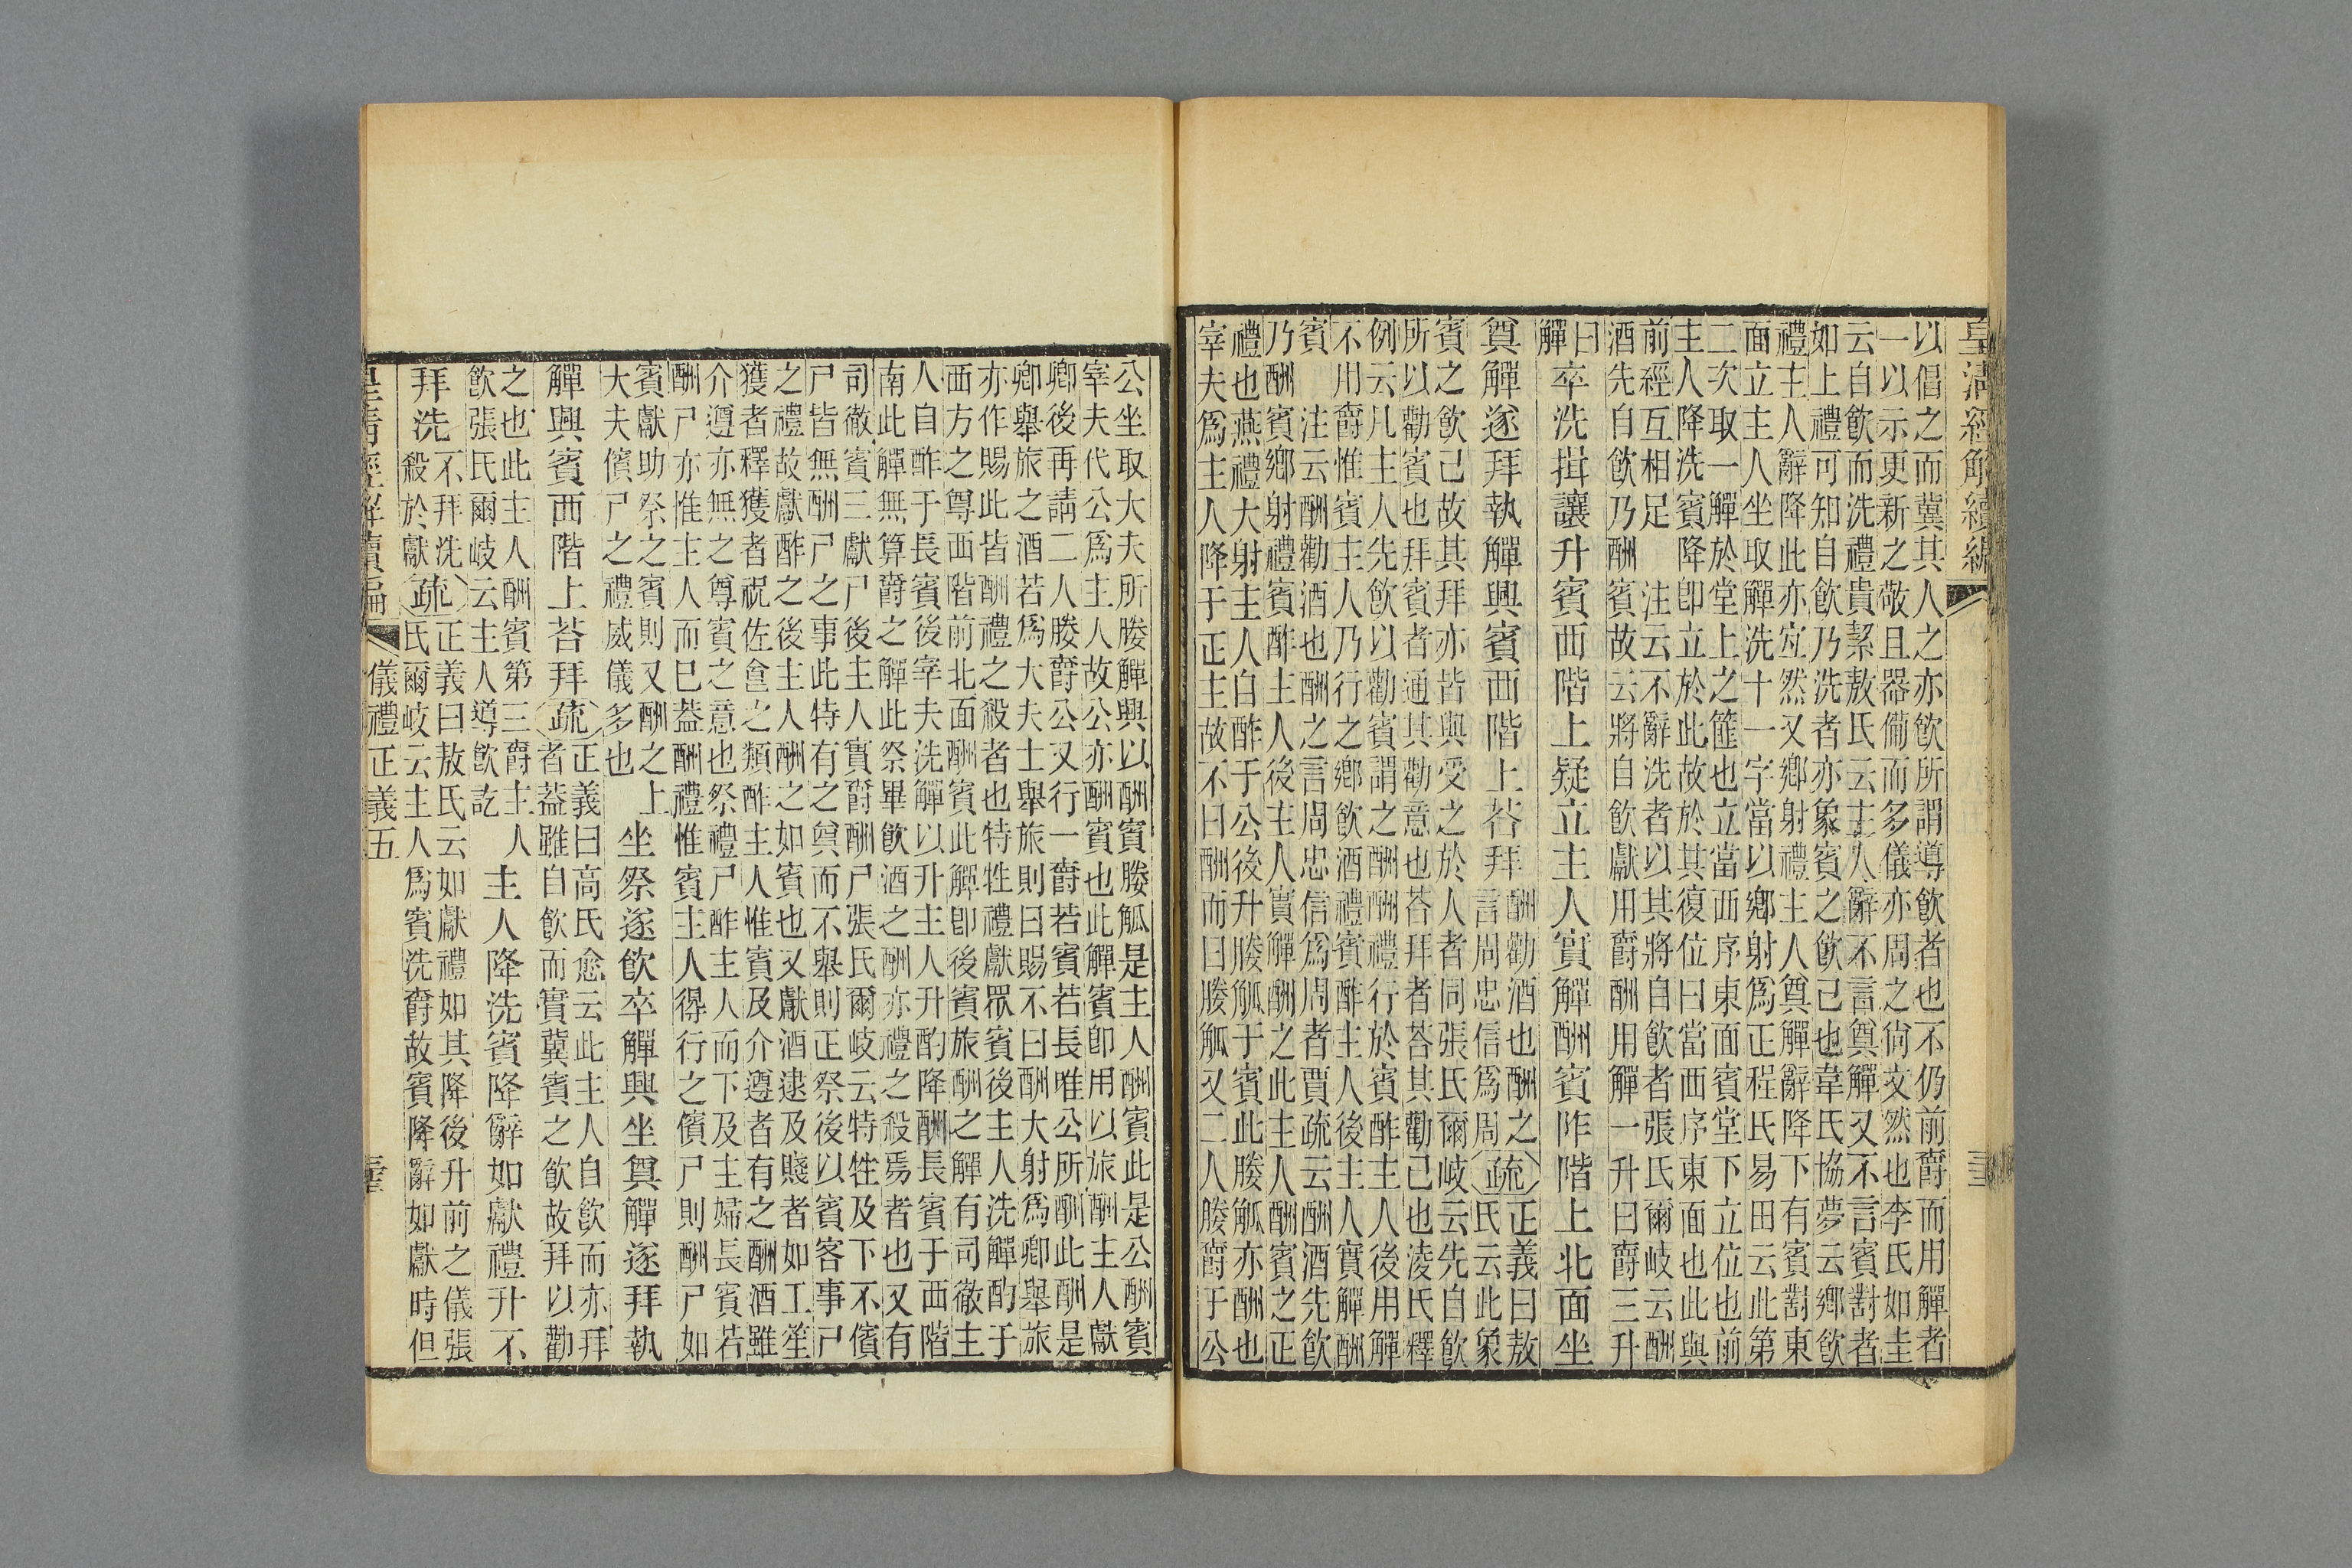 皇清經解續編
以倡之而冀其人之亦飲所謂導飲者也不仍前爵而用觶者
一以示更新之敬且器備而多儀亦周之尙文然也李氏如圭
云自飲而洗禮貴絜敖氏云主人辭不言奠觶又不言賓對者
如上禮可知自飲乃洗者亦象賓之飲己也韋氏協夢云鄉飲
禮主人辭降此亦宜然又鄉射禮主人奠觶辭降下有賓對東
面立主人坐取觶洗十一字當以鄉射爲正程氏易田云此第
二次取一觶於堂上之篚也立當西序東面賓堂下立位也前
主人降洗賓降卽立於此故於其復位曰當西序東面也此與
前經互相足 注云不辭洗者以其將自飲者張氏爾岐云酬
酒先自飲乃酬賓故云將自飲獻用爵酬用觶一升曰爵三升
曰觶 卒洗揖讓升賓西階上疑立主人實觶酬賓阼階上北面坐
奠觶遂拜執觶興賓西階上荅拜 酬勸酒也酬之言周忠信爲周 疏 正義曰敖氏云此象
賓之飲己故其拜亦皆與受之於人者同張氏爾岐云先自飲
所以勸賓也拜賓者通其勸意也荅拜者荅其勸己也淩氏釋
例云凡主人先飲以勸賓謂之酬酬禮行於賓酢主人後用觶
不用爵惟賓主人乃行之鄉飲酒禮賓酢主人後主人實觶酬
賓 注云酬勸酒也酬之言周忠信爲周者賈疏云酬酒先飲
乃酬賓鄉射禮賓酢主人後主人實觶酬之此主人酬賓之正
禮也燕禮大射主人自酢于公後升媵觚于賓此媵觚亦酬也
宰夫爲主人降于正主故不曰酬而曰媵觚又二人媵爵于公
公坐取大夫所媵觶興以酬賓媵觚是主人酬賓此是公酬賓
宰夫代公爲主人故公亦酬賓也此觶賓卽用以旅酬主人獻
卿後再請二人媵爵公又行一爵若賓若長唯公所酬此酬是
卿舉旅之酒若爲大夫士舉旅則曰賜不曰酬大射爲卿舉旅
亦作賜此皆酬禮之殺者也特牲禮獻眾賓後主人洗觶酌于
西方之尊西階前北面酬賓此觶卽後賓旅酬之觶有司徹主
人自酢于長賓後宰夫洗觶以升主人升酌降酬長賓于西階
南此觶無算爵之觶此祭畢飲酒之酬亦禮之殺焉者也又有
司徹賓三獻尸後主人實爵酬尸張氏爾岐云特牲及下不儐
尸皆無酬尸之事此特有之奠而不舉則正祭後以賓客事尸
之禮故獻酢之後主人酬之如賓也又獻酒逮及賤者如工笙
獲者釋獲者祝佐食之類酢主人惟賓及介遵者有之酬酒雖
介遵亦無之尊賓之意也祭禮尸酢主人而下及主婦長賓若
酬尸亦惟主人而已葢酬禮惟賓主人得行之儐尸則酬尸如
賓獻助祭之賓則又酬之上
大夫儐尸之禮威儀多也 坐祭遂飲卒觶興坐奠觶遂拜執
觶興賓西階上荅拜 疏 正義曰高氏愈云此主人自飲而亦拜
者葢雖自飲而實冀賓之飲故拜以勸
之也此主人酬賓第三爵主人
飲張氏爾岐云主人導飲訖 主人降洗賓降辭如獻禮升不
拜洗 不拜洗殺於獻 疏 正義曰敖氏云如獻禮如其降後升前之儀張
氏爾岐云主人爲賓洗爵故賓降辭如獻時但
皇清經解續編 儀禮正義五